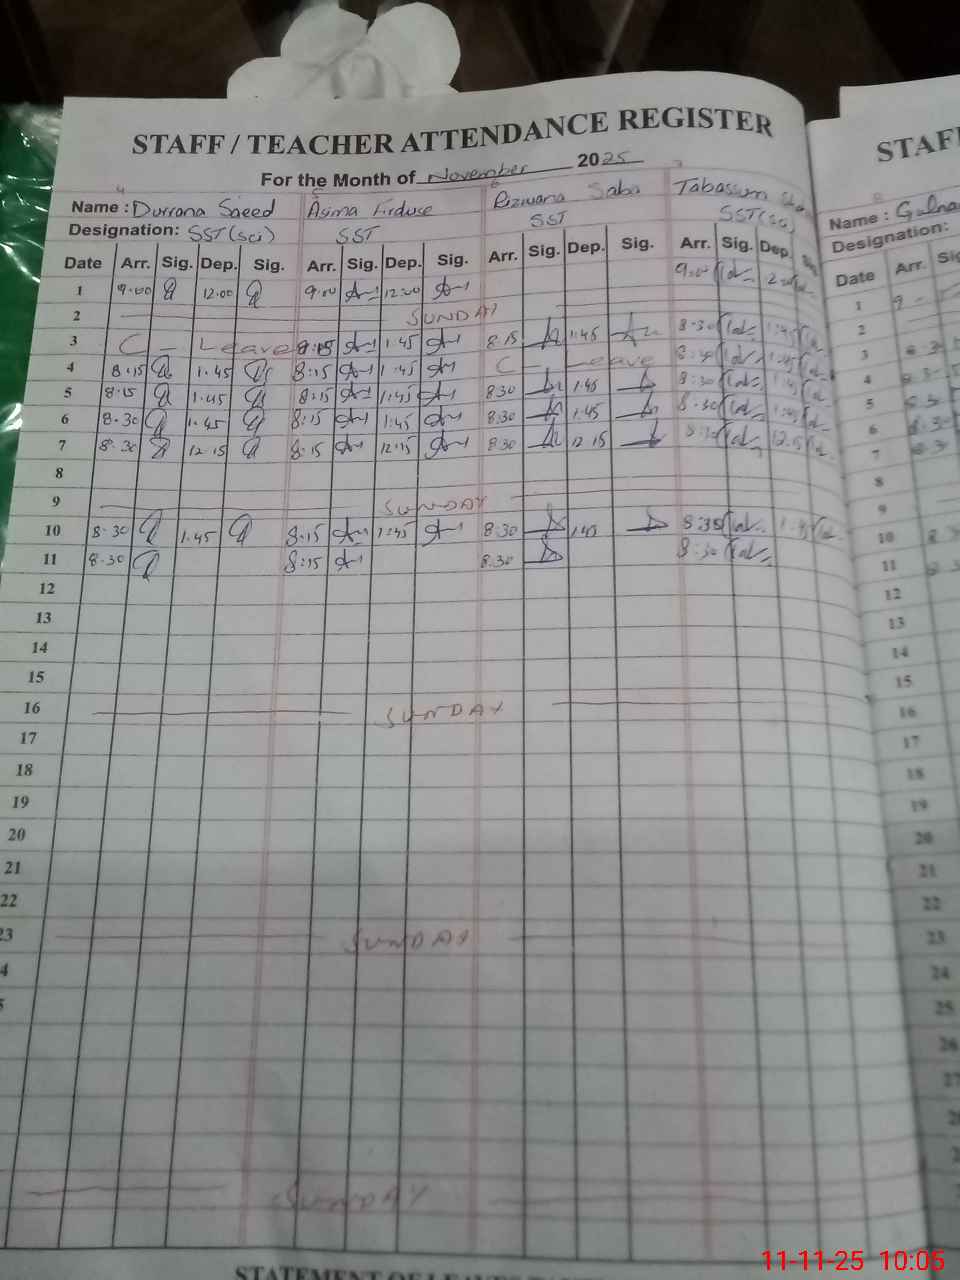 STAFF / TEACHER ATTENDANCE REGISTER
For the Month of November 2025
Name : Durrana Saeed Asma Firduse Rizwana Saba Tabassum
Designation: SST(sci) SST SST SST(sci)
Date Arr. Sig. Dep. Sig. Arr. Sig. Dep. Sig. Arr. Sig. Dep. Sig. Arr. Sig. Dep. Sig.
1 9.00 12.00 9.00 12.00 9.00
2 SUNDAY
3 C - Leave 8:15 1.45 8.15 1.45 8.30 1.45
4 8.15 1.45 8:15 1.45 C - Leave 8.30 1.45
5 8.15 1.45 8:15 1:45 8.30 1.45 8.30 1.45
6 8.30 1.45 8:15 1:45 8.30 1.45 8.30 1.45
7 8.30 12.15 8:15 12:15 8.30 12 15 8.30 12.15
8
9 SUNDAY
10 8.30 1.45 8:15 1:45 8.30 1.45 8.30 1.45
11 8.30 8:15 8.30 8.30
12
13
14
15
16 SUNDAY
17
18
19
20
21
22
23 SUNDAY
4
5
SUNDAY
STATEMENT OF
STAFF
Name :
Designation:
Date Arr.
1 9
2
3
4
5
6
7
8
9
10
11
12
13
14
15
16
17
18
19
20
21
22
23
24
25
26
27
11-11-25 10:05